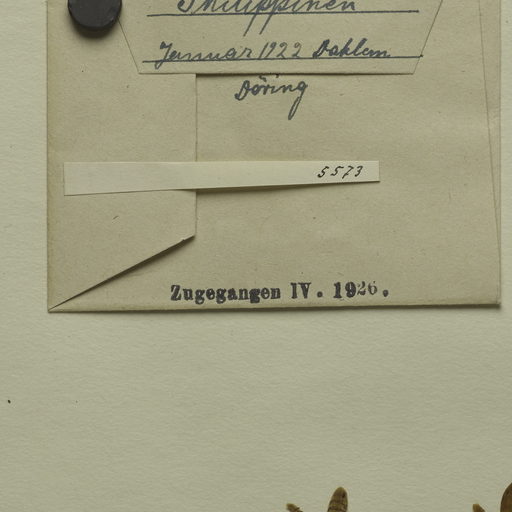 Philippinen
Januar 1922 Dahlem
Döring
5573
Zugegangen IV. 1926.